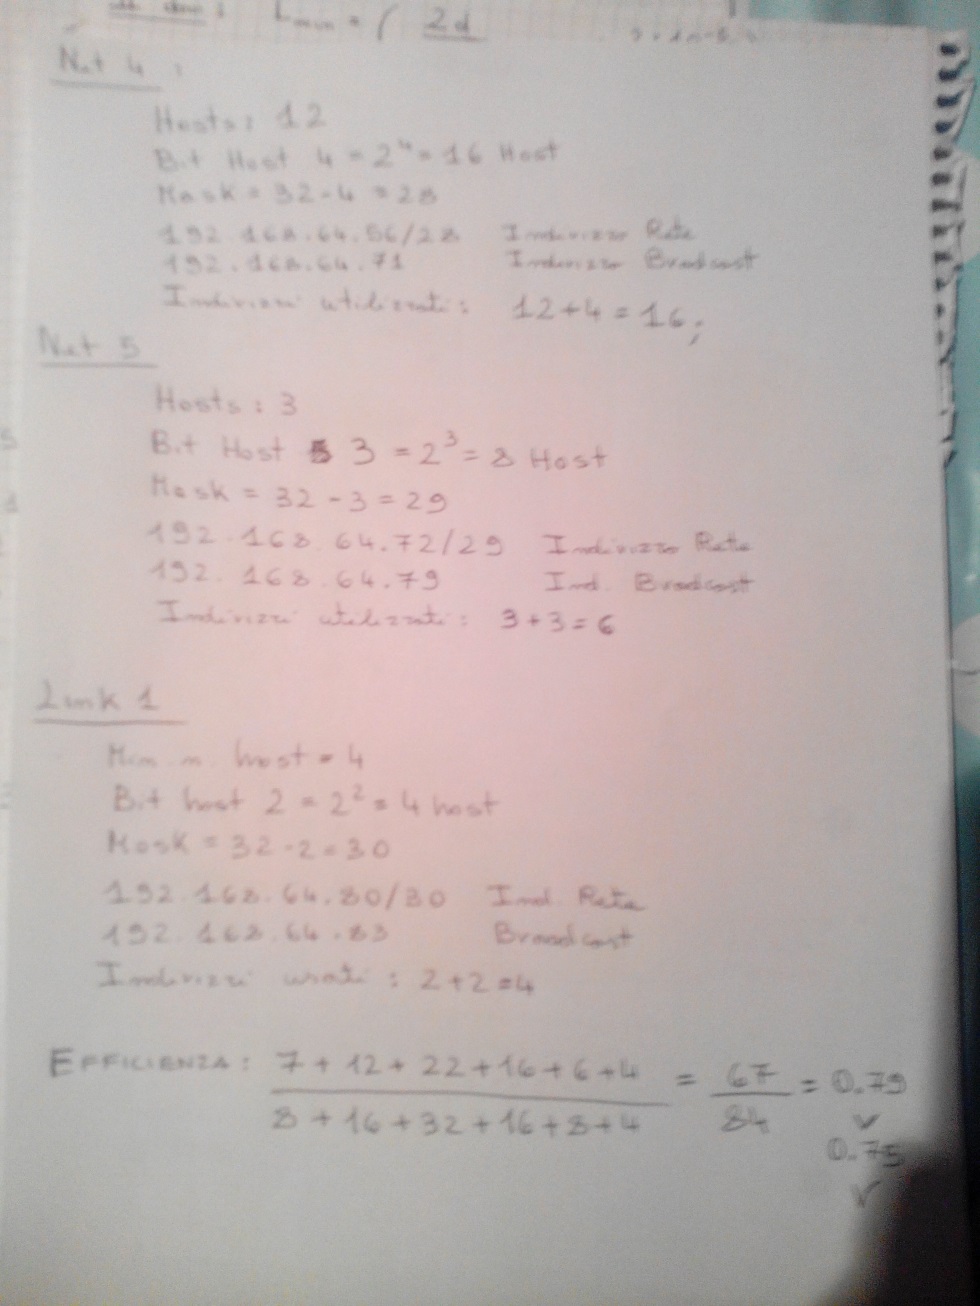 Lmin = ( 2d
Net 4 :
Hosts: 12
Bit Host 4 = 2^4 = 16 Host
Mask = 32 - 4 = 28
192.168.64.56/28 Indirizzo Rete
192.168.64.71 Indirizzo Broadcast
Indirizzi utilizzati: 12+4 = 16;
Net 5
Hosts: 3
Bit Host 3 = 2^3 = 8 Host
Mask = 32 - 3 = 29
192.168.64.72/29 Indirizzo Rete
192.168.64.79 Ind. Broadcast
Indirizzi utilizzati: 3+3=6
Link 1
Min. n. host = 4
Bit host 2 = 2^2 = 4 host
Mask = 32 - 2 = 30
192.168.64.80/30 Ind. Rete
192.168.64.83 Broadcast
Indirizzi usati: 2+2=4
EFFICIENZA: 7 + 12 + 22 + 16 + 6 + 4 = 67 = 0.79
8 + 16 + 32 + 16 + 8 + 4 84
0.75